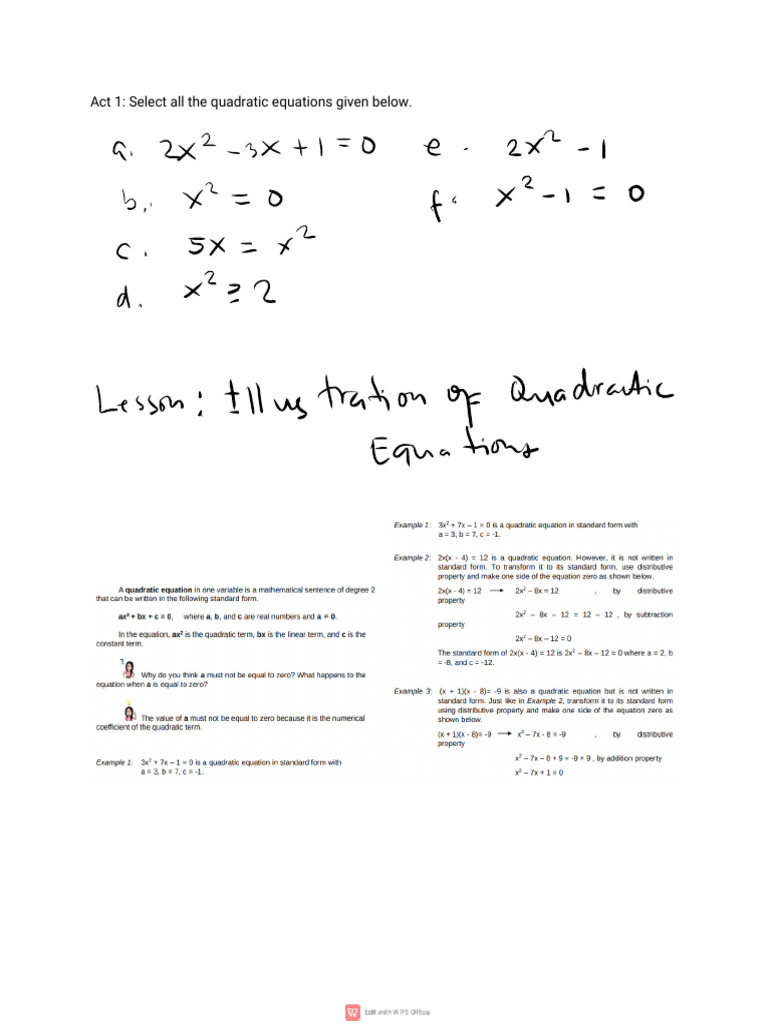 Act 1: Select all the quadratic equations given below.
a. 2x² - 3x + 1 = 0
b. x² = 0
c. 5x = x²
d. x² ≥ 2
e. 2x² - 1
f. x² - 1 = 0
Lesson: Illustration of Quadratic
Equations
A quadratic equation in one variable is a mathematical sentence of degree 2
that can be written in the following standard form.
ax² + bx + c = 0, where a, b, and c are real numbers and a ≠ 0.
In the equation, ax² is the quadratic term, bx is the linear term, and c is the
constant term.
Why do you think a must not be equal to zero? What happens to the
equation when a is equal to zero?
The value of a must not be equal to zero because it is the numerical
coefficient of the quadratic term.
Example 1: 3x² + 7x – 1 = 0 is a quadratic equation in standard form with
a = 3, b = 7, c = -1.
Example 1: 3x² + 7x – 1 = 0 is a quadratic equation in standard form with
a = 3, b = 7, c = -1.
Example 2: 2x(x - 4) = 12 is a quadratic equation. However, it is not written in
standard form. To transform it to its standard form, use distributive
property and make one side of the equation zero as shown below.
2x(x - 4) = 12 → 2x² – 8x = 12 , by distributive
property
2x² – 8x – 12 = 12 – 12 , by subtraction
property
2x² – 8x – 12 = 0
The standard form of 2x(x - 4) = 12 is 2x² – 8x – 12 = 0 where a = 2, b
= -8, and c = -12.
Example 3: (x + 1)(x - 8)= -9 is also a quadratic equation but is not written in
standard form. Just like in Example 2, transform it to its standard form
using distributive property and make one side of the equation zero as
shown below.
(x + 1)(x - 8)= -9 → x² – 7x - 8 = -9 , by distributive
property
x² – 7x – 8 + 9 = -9 + 9 , by addition property
x² – 7x + 1 = 0
Edit with WPS Office